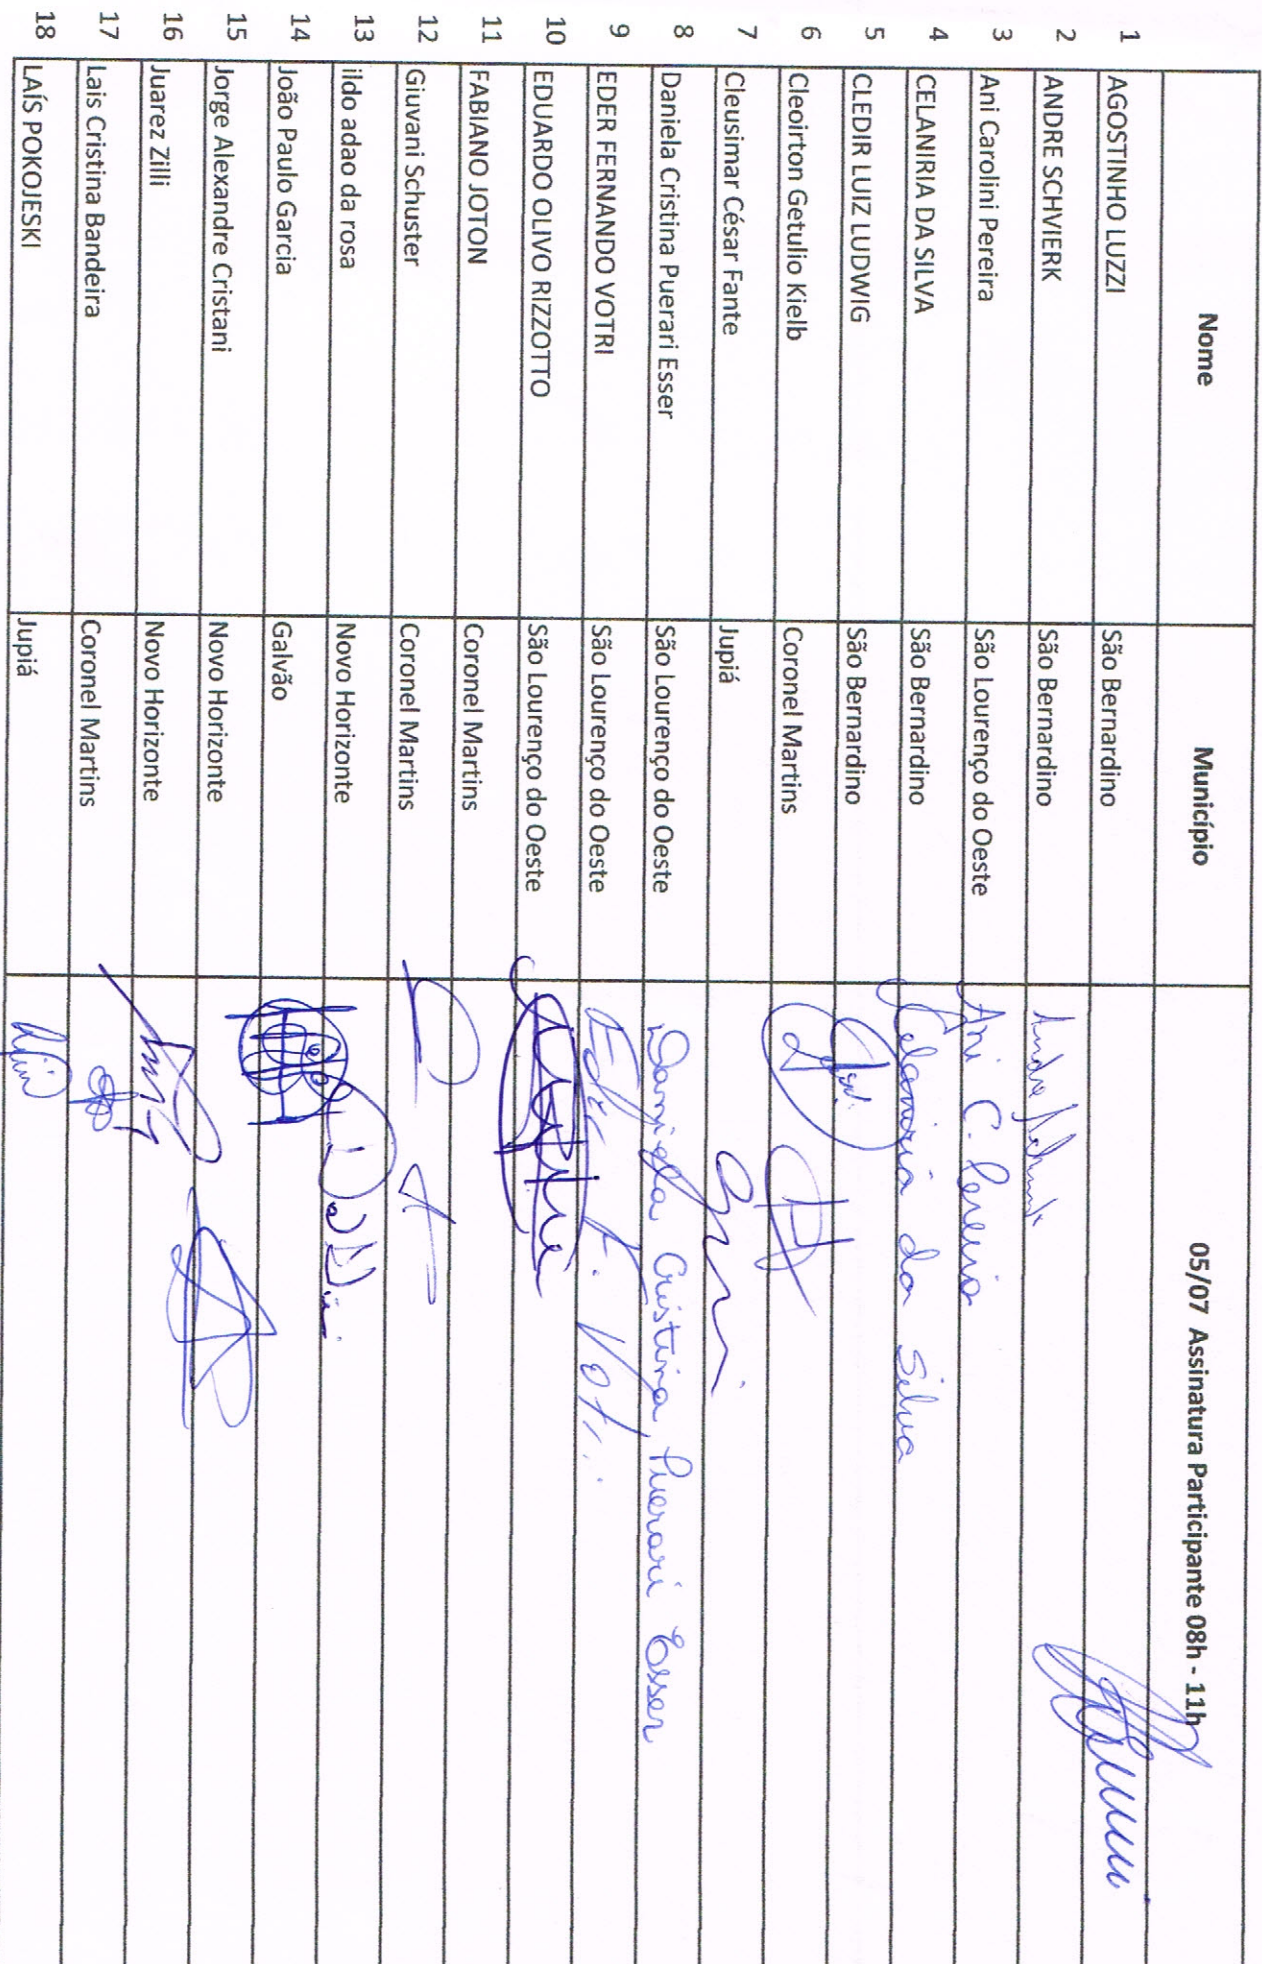 Nome Município 05/07 Assinatura Participante 08h - 11h
1 AGOSTINHO LUZZI São Bernardino
2 ANDRE SCHVIERK São Bernardino
3 Ani Carolini Pereira São Lourenço do Oeste Ani C. Pereira
4 CELANIRIA DA SILVA São Bernardino Celaniria da Silva
5 CLEDIR LUIZ LUDWIG São Bernardino
6 Cleoirton Getulio Kielb Coronel Martins
7 Cleusimar César Fante Jupiá
8 Daniela Cristina Puerari Esser São Lourenço do Oeste Daniela Cristina Puerari Esser
9 EDER FERNANDO VOTRI São Lourenço do Oeste Eder F. Votri
10 EDUARDO OLIVO RIZZOTTO São Lourenço do Oeste
11 FABIANO JOTON Coronel Martins
12 Giuvani Schuster Coronel Martins
13 ildo adao da rosa Novo Horizonte
14 João Paulo Garcia Galvão
15 Jorge Alexandre Cristani Novo Horizonte
16 Juarez Zilli Novo Horizonte
17 Lais Cristina Bandeira Coronel Martins
18 LAÍS POKOJESKI Jupiá